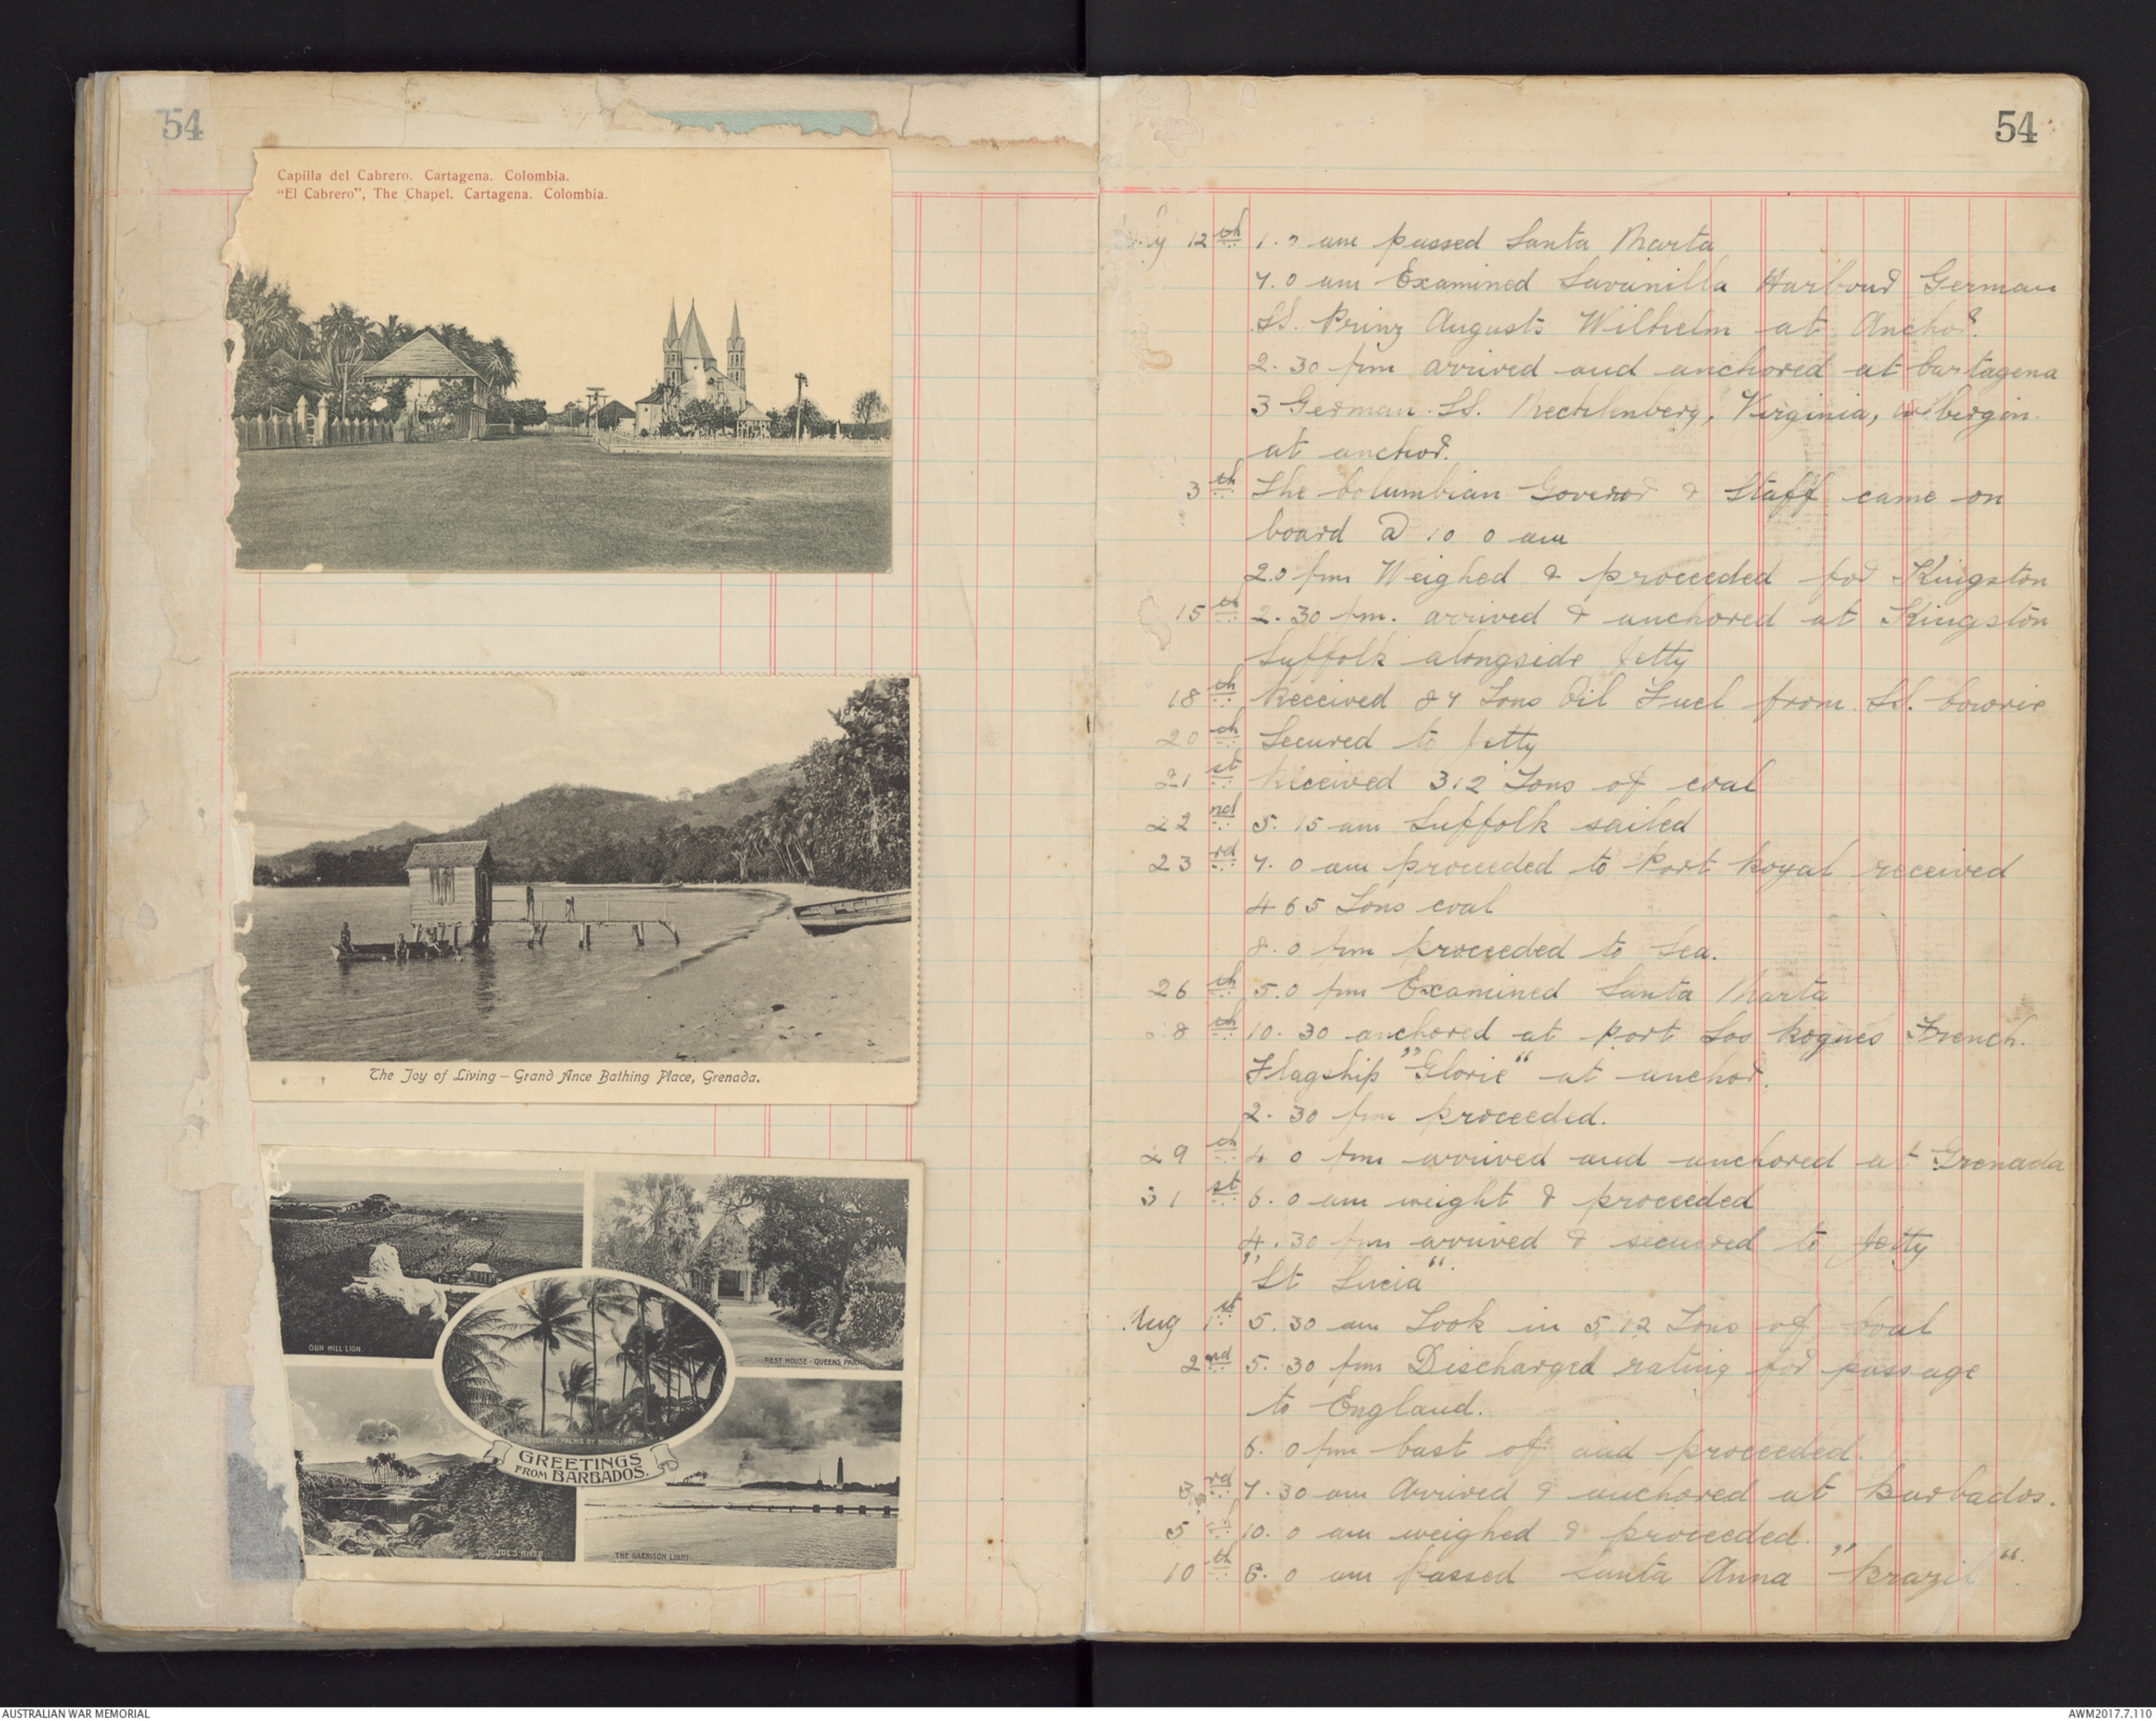 54
Capilla del Cabrero. Cartagena. Colombia.
"El Cabrero", The Chapel. Cartagena. Colombia.
The Joy of Living – Grand Ance Bathing Place, Grenada.
GUN HILL LION.
REST HOUSE - QUEENS PARK
COCOANUT PALMS BY MOONLIGHT.
GREETINGS
FROM BARBADOS.
JOE'S RIVER
THE GARRISON LIGHT
54
12th 1.0 am passed Santa Marta
7.0 am Examined Savanilla Harbour German
SS. Prinz Augusts Wilhelm at Anchor.
2.30 pm arrived and anchored at Cartagena
3 German SS. Mecklenberg, Virginia,
at anchor.
3th The Columbian Goveror & Staff came on
board @ 10 0 am
2.0 pm Weighed & proceeded for Kingston
15th 2.30 pm. arrived & anchored at Kingston
Suffolk alongside Jetty
18th Received 87 Tons Oil Fuel from SS. Cowrie
20th Secured to Jetty
21st Received 312 Tons of coal
22nd 5.15 am Suffolk sailed
23rd 7.0 am proceeded to Port Royal received
465 Tons coal
8.0 pm proceeded to Sea.
26th 5.0 pm Examined Santa Marta
8th 10.30 anchored at port Los Roques French.
Flagship "Glorie" at anchor.
2.30 pm proceeded.
29th 4.0 pm arrived and anchored at Grenada
31st 6.0 am weight & proceeded
4.30 pm arrived & secured to Jetty
"St Lucia"
Aug 1st 5.30 am Took in 512 Tons of Coal
2nd 5.30 pm Discharged rating for passage
to England.
6.0 pm Cast of and proceeded.
3rd 7.30 am Arrived & anchored at Barbados.
5th 10.0 am weighed & proceeded.
10th 6.0 am Passed Santa Anna "Brazil".
AUSTRALIAN WAR MEMORIAL
AWM2017.7.110